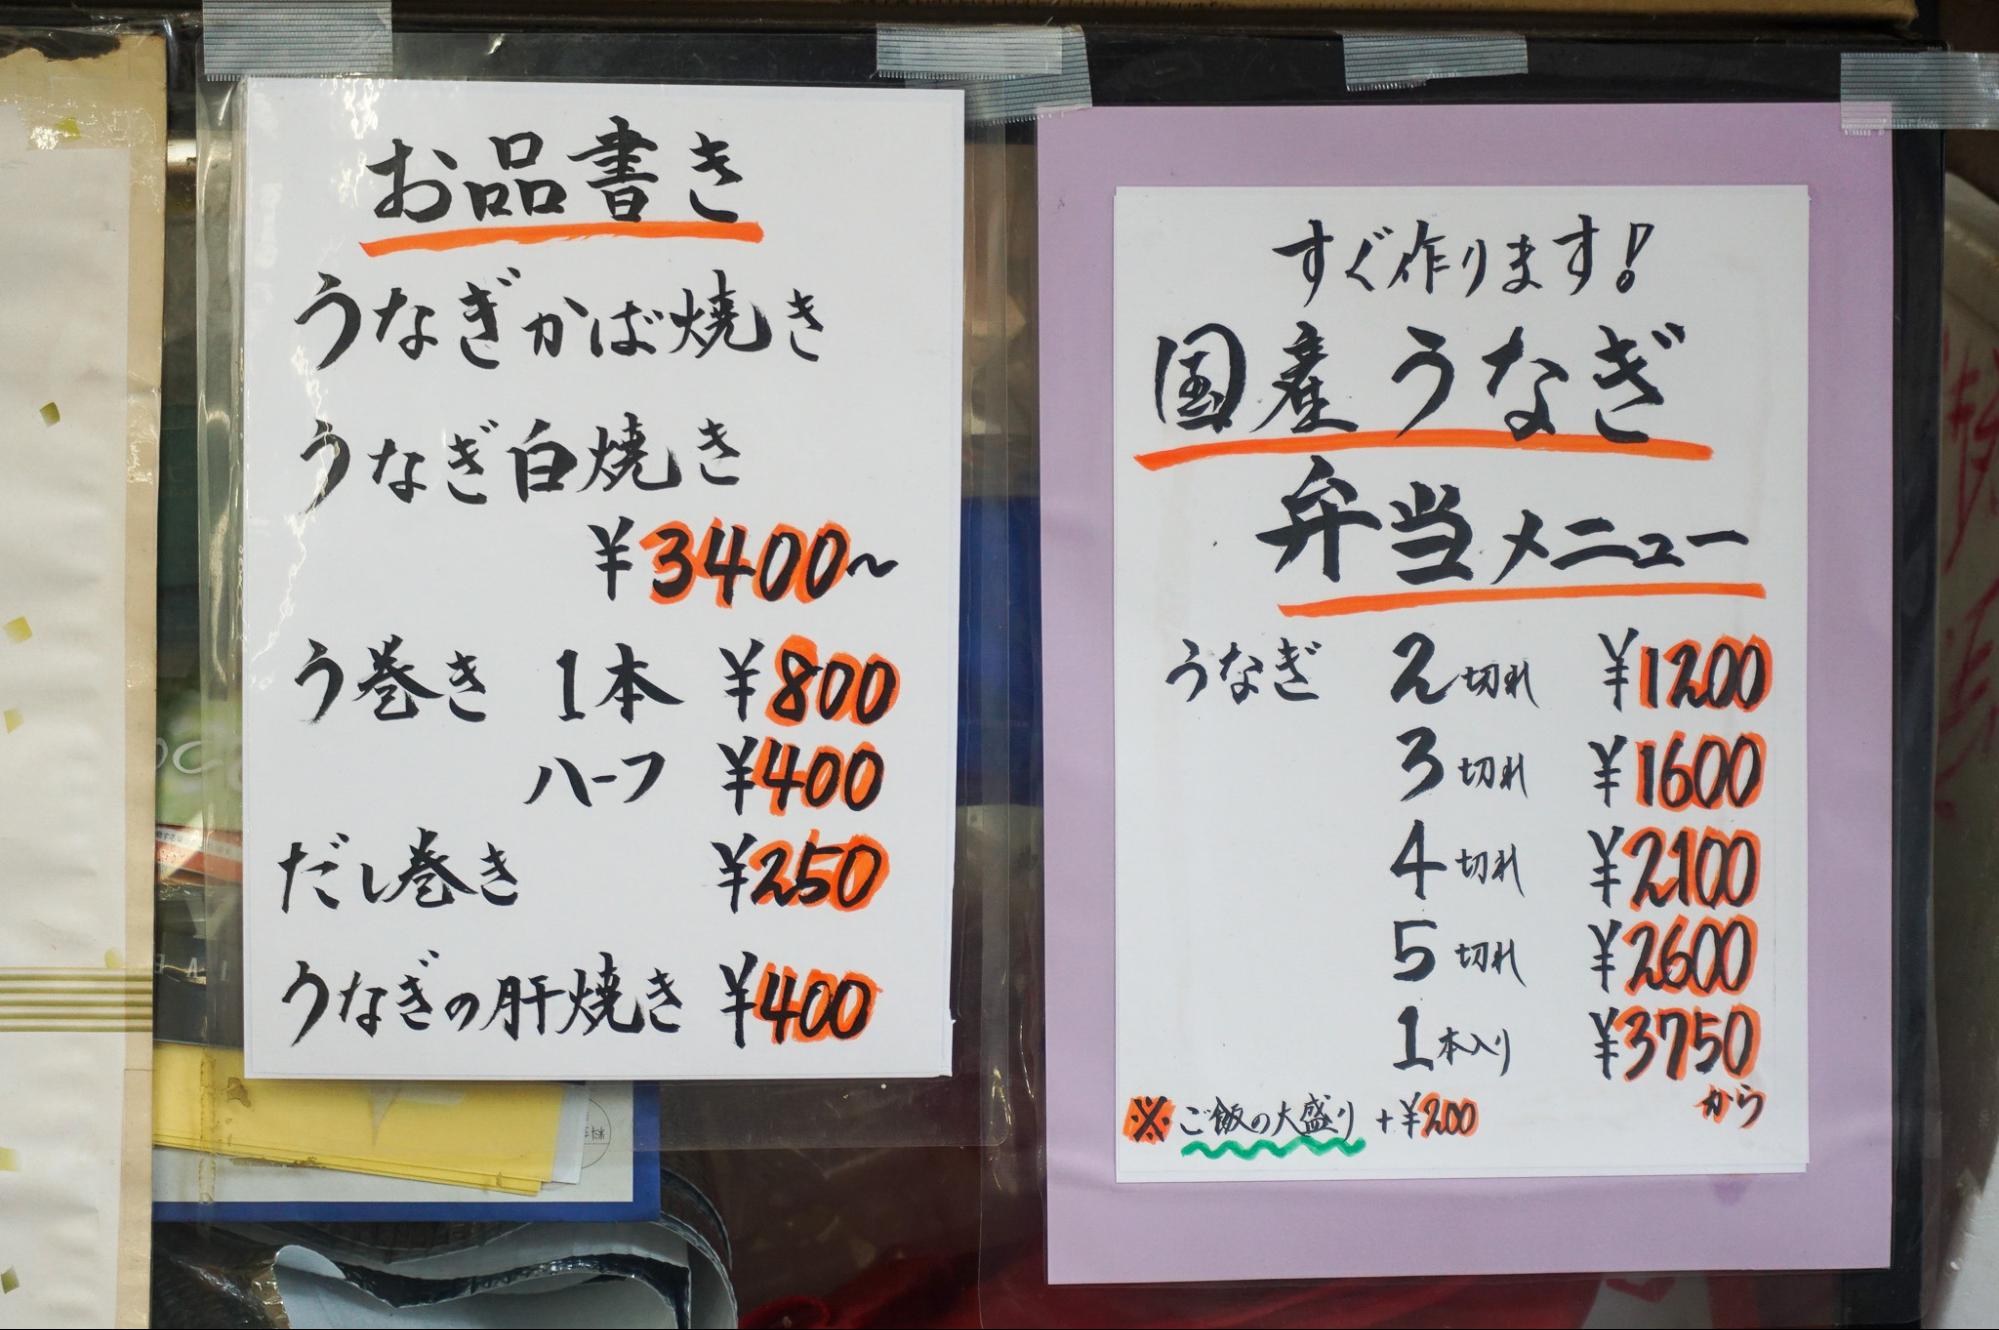 お品書き
うなぎかば焼き
うなぎ白焼き
¥3400~
う巻き 1本 ¥800
ハーフ ¥400
だし巻き ¥250
うなぎの肝焼き ¥400
すぐ作ります!
国産うなぎ
弁当メニュー
うなぎ 2切れ ¥1200
3切れ ¥1600
4切れ ¥2100
5切れ ¥2600
1本入り ¥3750
から
※ご飯の大盛り +¥200